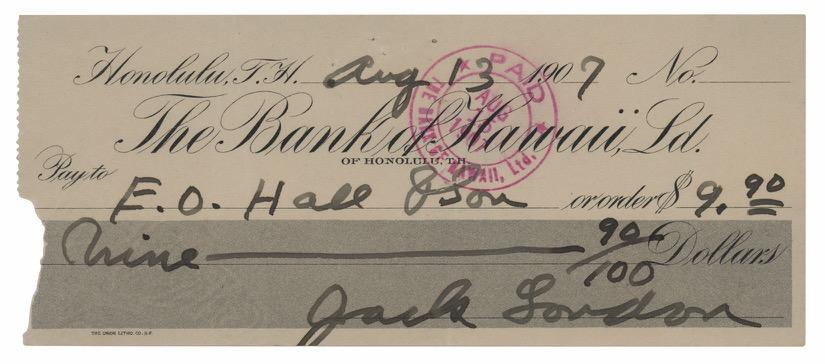 Honolulu, T.H. Aug 13 1907 No.
The Bank of Hawaii, Ld.
OF HONOLULU, T.H.
Pay to
E.O. Hall & Son or order $ 9.90
Nine 90/100 Dollars
Jack London
THE UNION LITHO. CO. S.F.
PAID
AUG
THE BANK OF HAWAII, Ltd.